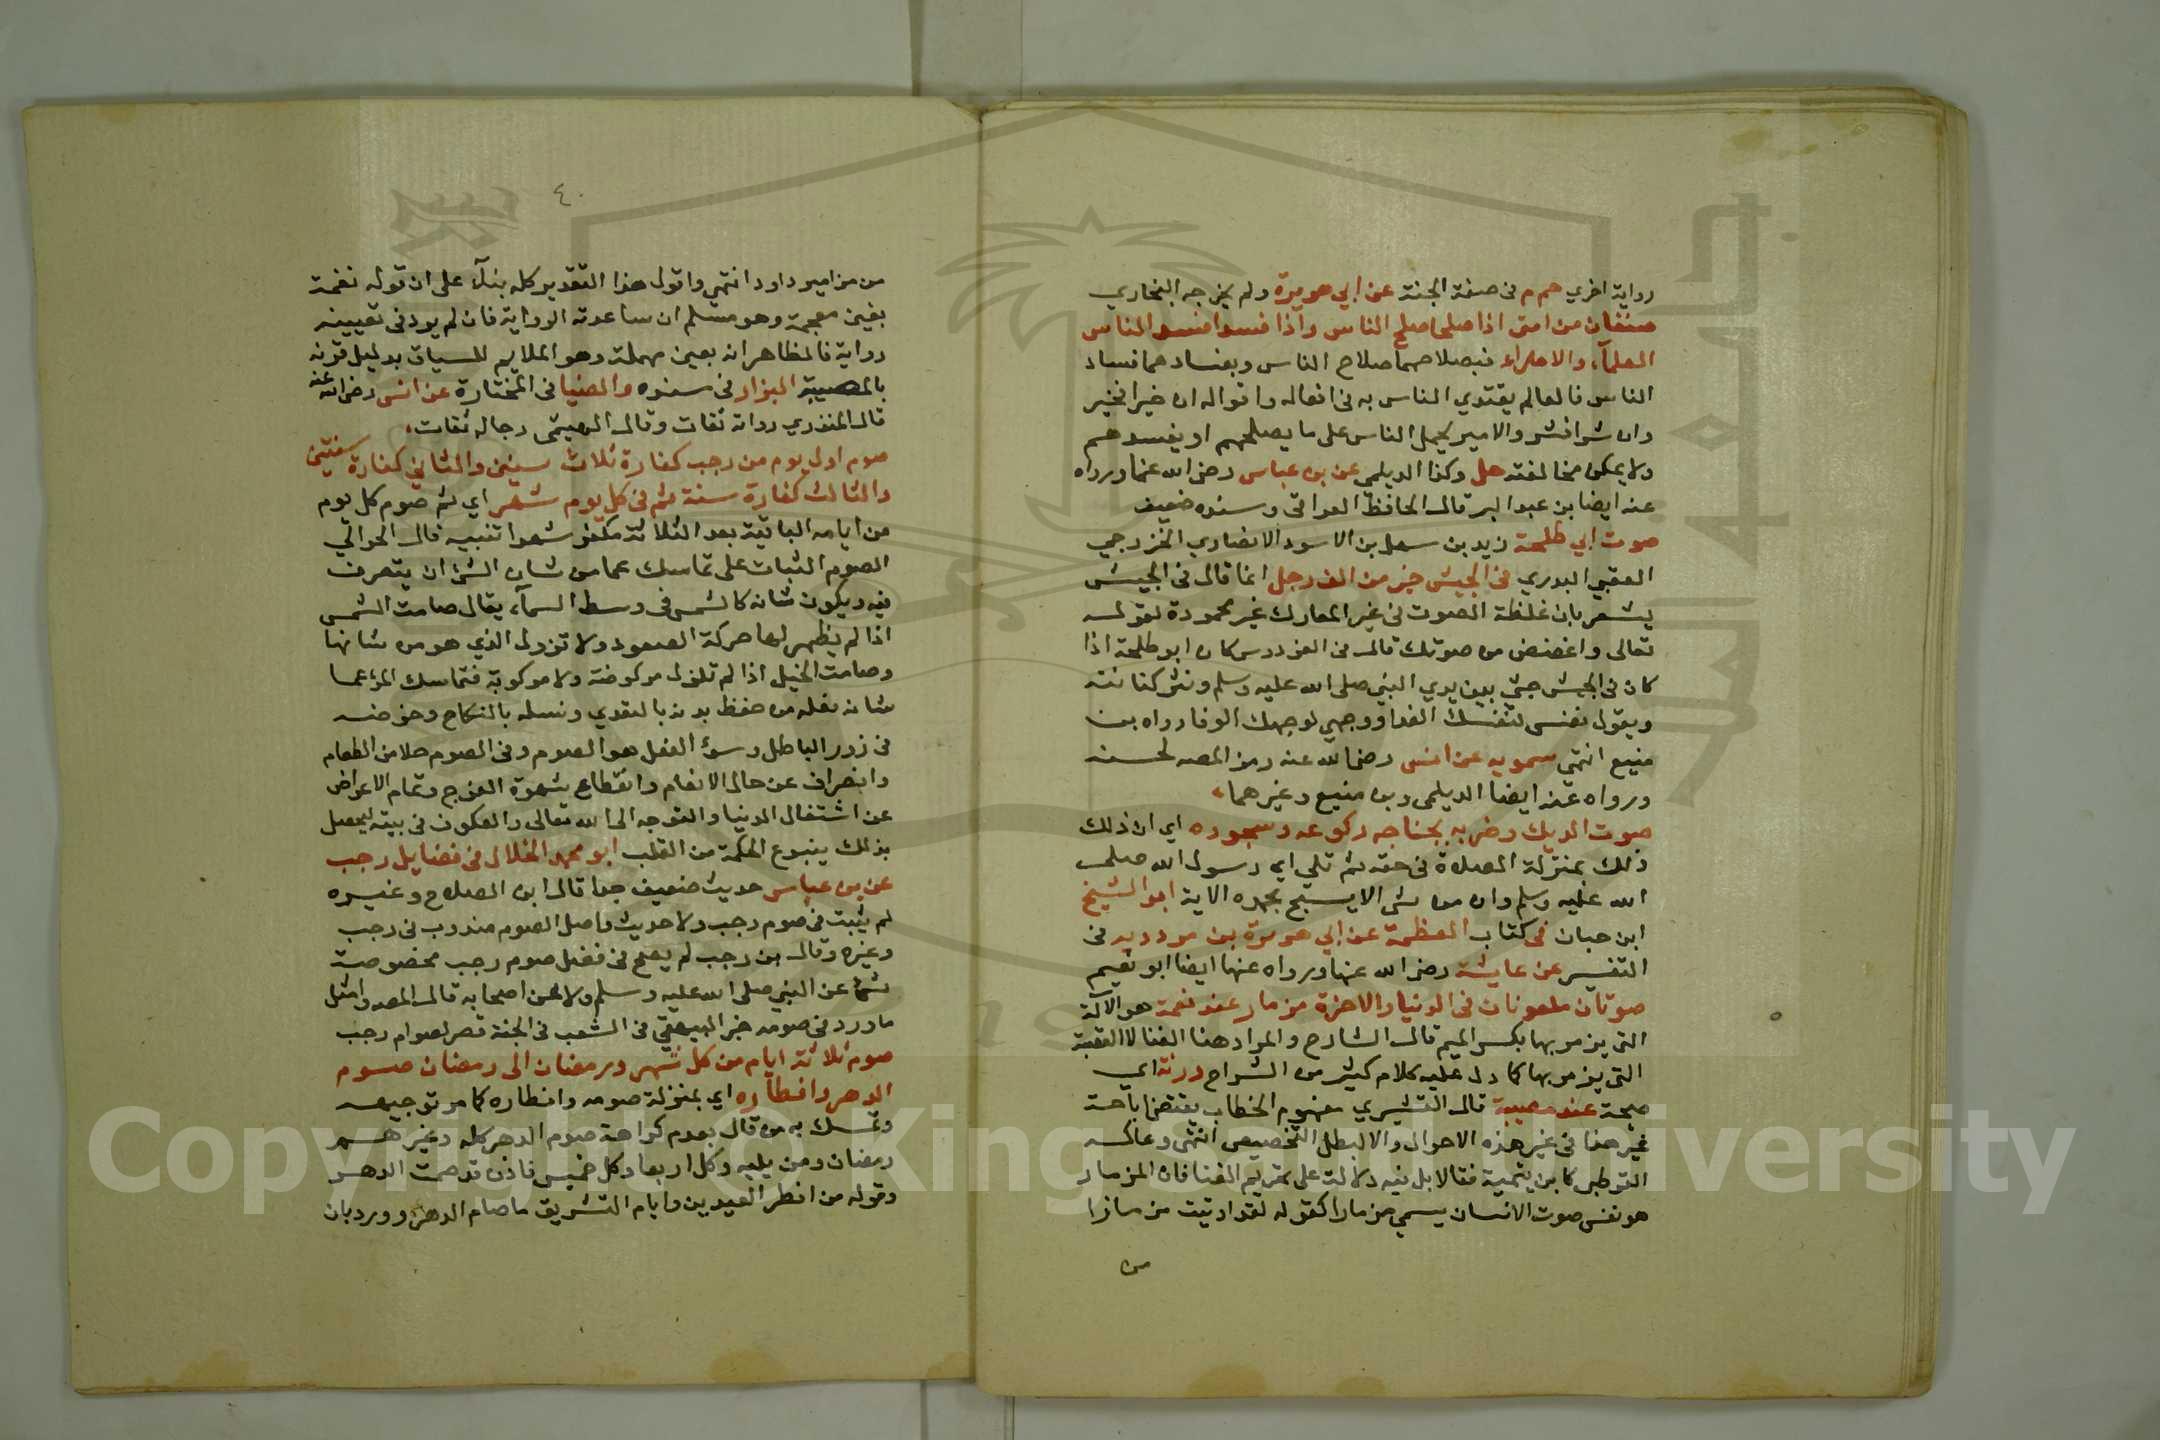 رواية اخري حم م في صفة الجنة عن ابي هريرة ولم يخرجه البخاري
صنفان من امتي اذا صلحا صلح الناس واذا فسدا فسد الناس
العلمآء والامراء فبصلاحهما صلاح الناس وبفسادهما فساد
الناس فالعالم يقتدي الناس به في افعاله واقواله ان خيرا فخير
وان شرا فشر والامير يحمل الناس على ما يصلحهم او يفسدهم
ولا يمكن مخالفته حل وكذا الديلمي عن بن عباس رضى الله عنهما ورواه
عنه ايضا بن عبد البر قال الحافظ العراقي وسنده ضعيف
صوت ابي طلحة زيد بن سهل بن الاسود الانصاري الخزرجي
العقبي البدري في الجيش خير من الف رجل انما قال في الجيش
يشعر بان غلظة الصوت في غير المعارك غير محمودة لقوله
تعالى واغضض من صوتك قال في الفردوس كان ابو طلحة اذا
كان في الجيش جثي بين يدي النبي صلى الله عليه وسلم ونثر كنانته
ويقول نفسي لنفسك الفدا ووجهي لوجهك الوقا رواه بن
منيع انتهى سمويه عن انس رضى الله عنه رمز المصه لحسنه
ورواه عنه ايضا الديلمي وبن منيع وغيرهما
صوت الديك وضربه بجناحه ركوعه وسجوده اي ان ذلك
ذلك بمنزلة الصلاة في حقه ثم تلي اي رسول الله صلى
الله عليه وسلم وان من شي الا يسبح بحمده الاية ابو الشيخ
ابن حبان في كتاب العظمة عن ابي هريرة بن مردديه في
التفسير عن عايشة رضى الله عنها ورواه عنها ايضا ابو نعيم
صوتان ملعونان في الدنيا والاخرة مزمار عند نغمة هو الآلة
التي يزمر بها بكسر الميم قال الشارح والمراد هنا الغنا لا القصبة
التي يزمر بها كما دل عليه كلام كثير من الشراح ورنة اي
صيحة عند مصيبة قال القشيري مفهوم الخطاب يقتضي اباحة
غير هذا في غير هذه الاحوال والا لبطل التخصيص انتهى وعاكسه
القرطبي كابن تيمية فقالا بل فيه دلالة على تحريم الغنا فان المزمار
هو نفس صوت الانسان يسمي مزمارا كقوله لقد اوتيت مزمارا
من
٤٠
من مزامير داود انتهي واقول هذا التقدير كله بنآء على ان قوله نغمة
بغين معجمة وهو مسلم ان ساعدته الرواية فان لم يرد في تعيينه
رواية فالظاهر انه بعين مهملة وهو الملايم للسياق بدليل قرنه
بالمصيبة البزار في سنده والضيا في المختارة عن انس رضى الله عنه
قال المنذري رواته ثقات وقال الهيثمي رجاله ثقات
صوم اول يوم من رجب كفارة ثلاث سنين والثاني كفارة سنتين
والثالث كفارة سنة ثم في كل يوم شهر اي ثم صوم كل يوم
من ايامه الباقية بعد الثلاثة مكفر شهرا تنبيه قال الحرالي
الصوم الثبات على تماسك عما من شان الشئ ان يتصرف
فيه ويكون شانه كالشمس في وسط السمآء يقال صامت الشمس
اذا لم يظهر لها حركة الصعود ولا نزول الذي هو من شانها
وصامت الخيل اذا لم تزل مركوضة ولا مركوبة فتماسك المرؤ عما
شانه فعله من حفظ بدنه بالتغدي ونسله بالنكاح وخوضه
في زور الباطل وسوء الفعل هو الصوم وفي الصوم خلا من الطعام
وانصراف عن حال الانعام وانقطاع شهوة الفرج وتمام الاعراض
عن اشتغال الدنيا والتوجه الى الله تعالى والعكوف في بيته ليحصل
بذلك ينبوع الحكمة من القلب ابو محمد الخلال في فضايل رجب
عن بن عباس حديث ضعيف جدا قال ابن الصلاح وغيره
لم يثبت في صوم رجب ولا حديث واصل الصوم مندوب في رجب
وغيره وقال بن رجب لم يصح في فضل صوم رجب مخصوصه
شئ عن النبي صلى الله عليه وسلم ولا عن اصحابه قال المصه وامثل
ما ورد في صومه خبر البيهقي في الشعب في الجنة قصر لصوام رجب
صوم ثلاثة ايام من كل شهر ورمضان الى رمضان صوم
الدهر وافطاره اي بمنزلة صومه وافطاره كما مر توجيهه
وتمسك به من قال بعدم كراهة صوم الدهر كله وغيرهم
رمضان ومن يليه وكل اربعا وكل خميس فاذن قد صمت الدهر
وقوله من افطر العيدين وايام التشريق ما صام الدهر وورد بان
Copyright © King Saud University